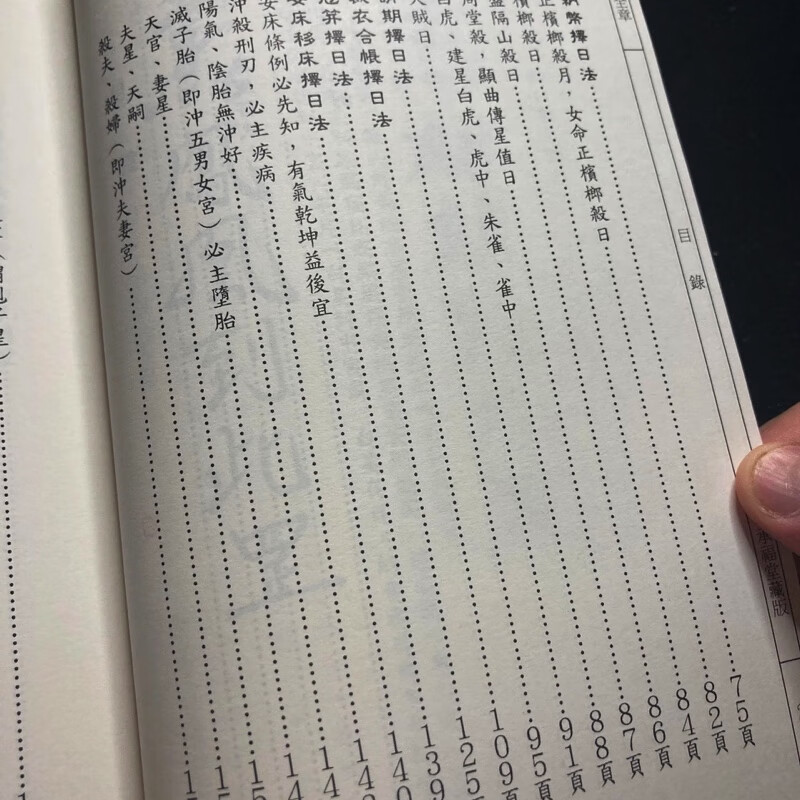 章
目錄
承福堂藏版
幣擇日法 75頁
正檳榔殺月，女命正檳榔殺日 82頁
檳榔殺日 84頁
隔山殺日 86頁
周堂殺，顯曲傳星值日 87頁
白虎、建星白虎、虎中、朱雀、雀中 88頁
天賊日 91頁
期擇日法 95頁
衣合帳擇日法 109頁
笄擇日法 125
安床移床擇日法 139
安床條例必先知，有氣乾坤益後宜 140
沖殺刑刃，必主疾病 14
陽氣、陰胎無沖好 14
滅子胎（即沖五男女宮）必主墮胎 14
天官、妻星 15
夫星、天嗣 15
殺夫、殺婦（即沖夫妻宮） 15